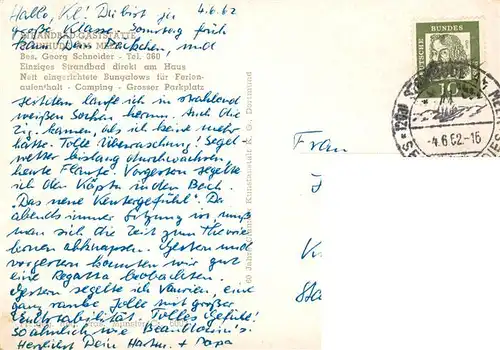 Hallo, Kl! Du bist ja 4.6.62
große Klasse. Samstag früh
STRANDBAD-GASTSTÄTTE
kam Dein Päckchen, und
Bes. Georg Schneider - Tel. 360
Einziges Strandbad direkt am Haus
Nett eingerichtete Bungalows für Ferien-
aufenthalt - Camping - Grosser Parkplatz
seitdem laufe ich in strahlend
weißen Socken herum. Auch die
Zig. kamen, als ich keine mehr
hatte. Tolle Überraschung! Segel-
wetter bislang durchwachsen,
heute Flaute. Vorgestern segelte
ich den Käptn in den Bach.
"Das neue Kentergefühl". Da
abends immer Sitzung ist, muß
man sich die Zeit zum Theorie
lernen abknapsen. Gestern und
vorgestern konnten wir gut
eine Regatta beobachten.
Gestern segelte ich Vaurien, eine
ganz ranke Jolle mit großer
Endstabilität. Tolles Gefühl!
So ähnlich wie Beaulieu's.
Herzlichst Dein + Papa
60 Jahre Kunstanstalt K. G., Dortmund
DEUTSCHE BUNDES
10
-4.6.62-16
Frau